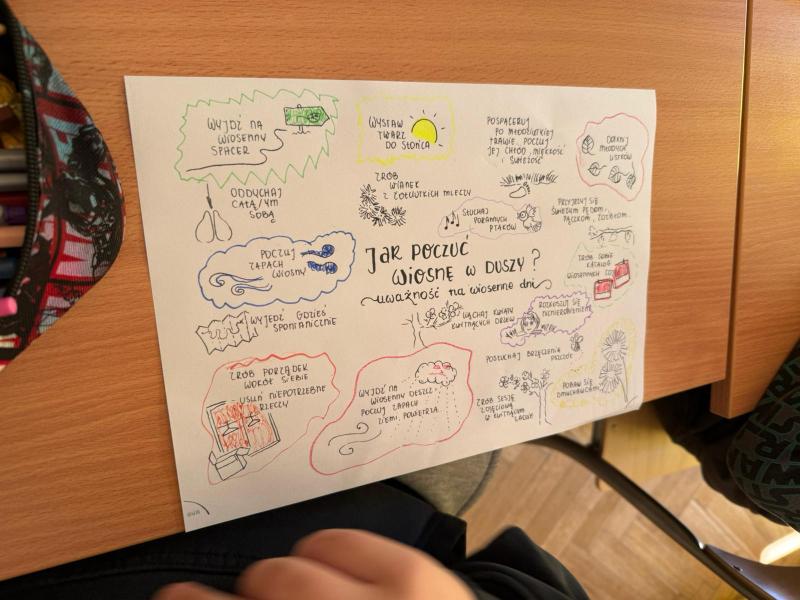 WYJDŹ NA
WIOSENNY
SPACER
WYSTAW
TWARZ
DO SŁOŃCA
POSPACERUJ
PO MŁODZIUTKIEJ
TRAWIE, POCZUJ
JEJ CHŁÓD, MIĘKKOŚĆ
I ŚWIEŻOŚĆ
DOTKNIJ
MŁODYCH
LISTKÓW
ODDYCHAJ
CAŁĄ/YM
SOBĄ
ZRÓB
WIANEK
Z ŻÓŁCIUTKICH MLECZY
SŁUCHAJ
PORANNYCH
PTAKÓW
PRZYJRZYJ SIĘ
ŚWIEŻYM PĘDOM,
PĄCZKOM, ŹDŹBŁOM..
POCZUJ
ZAPACH
WIOSNY
JAK POCZUĆ
WIOSNĘ W DUSZY?
uważność na wiosenne dni
ZRÓB SOBIE
KATALOG
WIOSENNYCH
WYJEDŹ GDZIEŚ
SPONTANICZNIE
WĄCHAJ KWIATY
KWITNĄCYCH DRZEW
ROZKOSZUJ SIĘ
POSŁUCHAJ BRZĘCZENIA
PSZCZÓŁ
ZRÓB PORZĄDEK
WOKÓŁ SIEBIE
USUŃ NIEPOTRZEBNE
RZECZY
WYJDŹ NA
WIOSENNY DESZCZ
POCZUJ ZAPACH
ZIEMI, POWIETRZA.
ZRÓB SESJĘ
ZDJĘCIOWĄ
W KWITNĄCYM
SADZIE
POBAW SIĘ
DMUCHAWCAMI